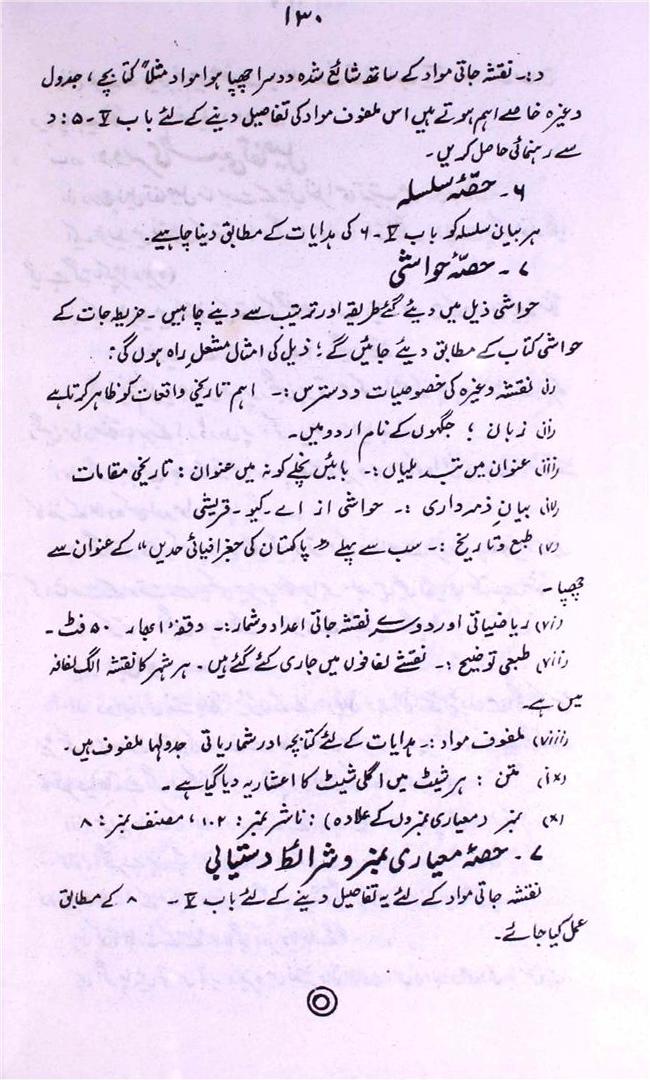 ۱۳۰
د:۔ نقشہ جاتی مواد کے ساتھ شائع شدہ دوسرا چھپا ہوا مواد مثلاً کتابچے ، جدول
وغیرہ خاصے اہم ہوتے ہیں اس ملفوف مواد کی تفاصیل دینے کے لئے باب V ۔ ۵ : د
سے رہنمائی حاصل کریں ۔
۶ ۔ حصّۂ سلسلہ
ہر بیان سلسلہ کو باب V ۔ ۶ کی ہدایات کے مطابق دینا چاہیے ۔
۷ ۔ حصّۂ حواشی
حواشی ذیل میں دیئے گئے طریقہ اور ترتیب سے دینے چاہیں ۔ خریطہ جات کے
حواشی کتاب کے مطابق دیئے جائیں گے ؛ ذیل کی امثال مشعل راہ ہوں گی :
(i) نقشہ وغیرہ کی خصوصیات و دسترس :۔ اہم تاریخی واقعات کو ظاہر کرتا ہے
(ii) زبان ؛ جگہوں کے نام اردو میں ۔
(iii) عنوان میں تبدیلیاں :۔ بائیں نچلے کونہ میں عنوان : تاریخی مقامات
(iv) بیان ذمہ داری :۔ حواشی از اے ۔ کیو ۔ قریشی
(v) طبع و تاریخ :۔ سب سے پہلے “ پاکستان کی جغرافیائی حدیں “ کے عنوان سے
چھپا ۔
(vi) ریاضیاتی اور دوسرے نقشہ جاتی اعداد و شمار :۔ وقفۂ ابحار ۵۰ فٹ ۔
(vii) طبعی توضیح :۔ نقشے لفافوں میں جاری کئے گئے ہیں ۔ ہر شہر کا نقشہ الگ لفافہ
میں ہے ۔
(viii) ملفوف مواد :۔ ہدایات کے لئے کتابچہ اور شماریاتی جدولہا ملفوف ہیں ۔
(ix) متن : ہر شیٹ میں اگلی شیٹ کا اعشاریہ دیا گیا ہے ۔
(x) نمبر (معیاری نمبروں کے علاوہ) : ناشر نمبر : ۱۰۲ ، مصنف نمبر : ۸
۷ ۔ حصۂ معیاری نمبر و شرائط دستیابی
نقشہ جاتی مواد کے لئے یہ تفاصیل دینے کے لئے باب V ۔ ۸ کے مطابق
عمل کیا جائے ۔